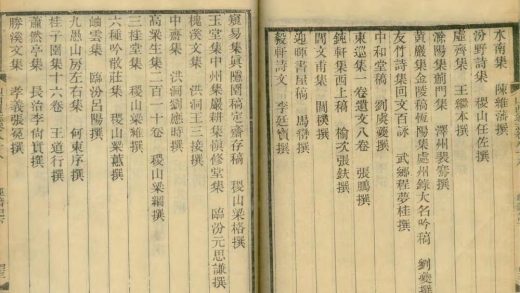 水南集 陳維藩撰
汾野詩集 稷山任佐撰
虛齋集 王繼本撰
滁陽集薊門集 澤州裴騫撰
黃巖集金陵稿恆陽集處州錄大名吟稿 劉夔撰
友竹詩集回文百詠 武鄉程夢桂撰
中和堂稿 劉虞夔撰
東巡集一卷遺文八卷 張鵬撰
鈍軒集西上稿 榆次張鈇撰
閻文甫集 閻樸撰
迎暉書屋稿 馬巒撰
毅軒詩文 李廷寶撰
寅易集眞隱園稿定齋存稿 稷山梁格撰
玉堂集中州集嚴耕集嶺修堂集 臨汾元思謙撰
槐溪文集 洪洞王三接撰
中齋集 洪洞劉應時撰
高粱生集二百一十卷 稷山梁綱撰
三桂堂集 稷山梁維撰
六種吟敞莊集 稷山梁蕙撰
岫雲集 臨汾呂陽撰
九愚山房左右集 何東序撰
桂子園集十六卷 王道行撰
蕭然亭集 長治李尙實撰
勝溪文集 孝義張冕撰